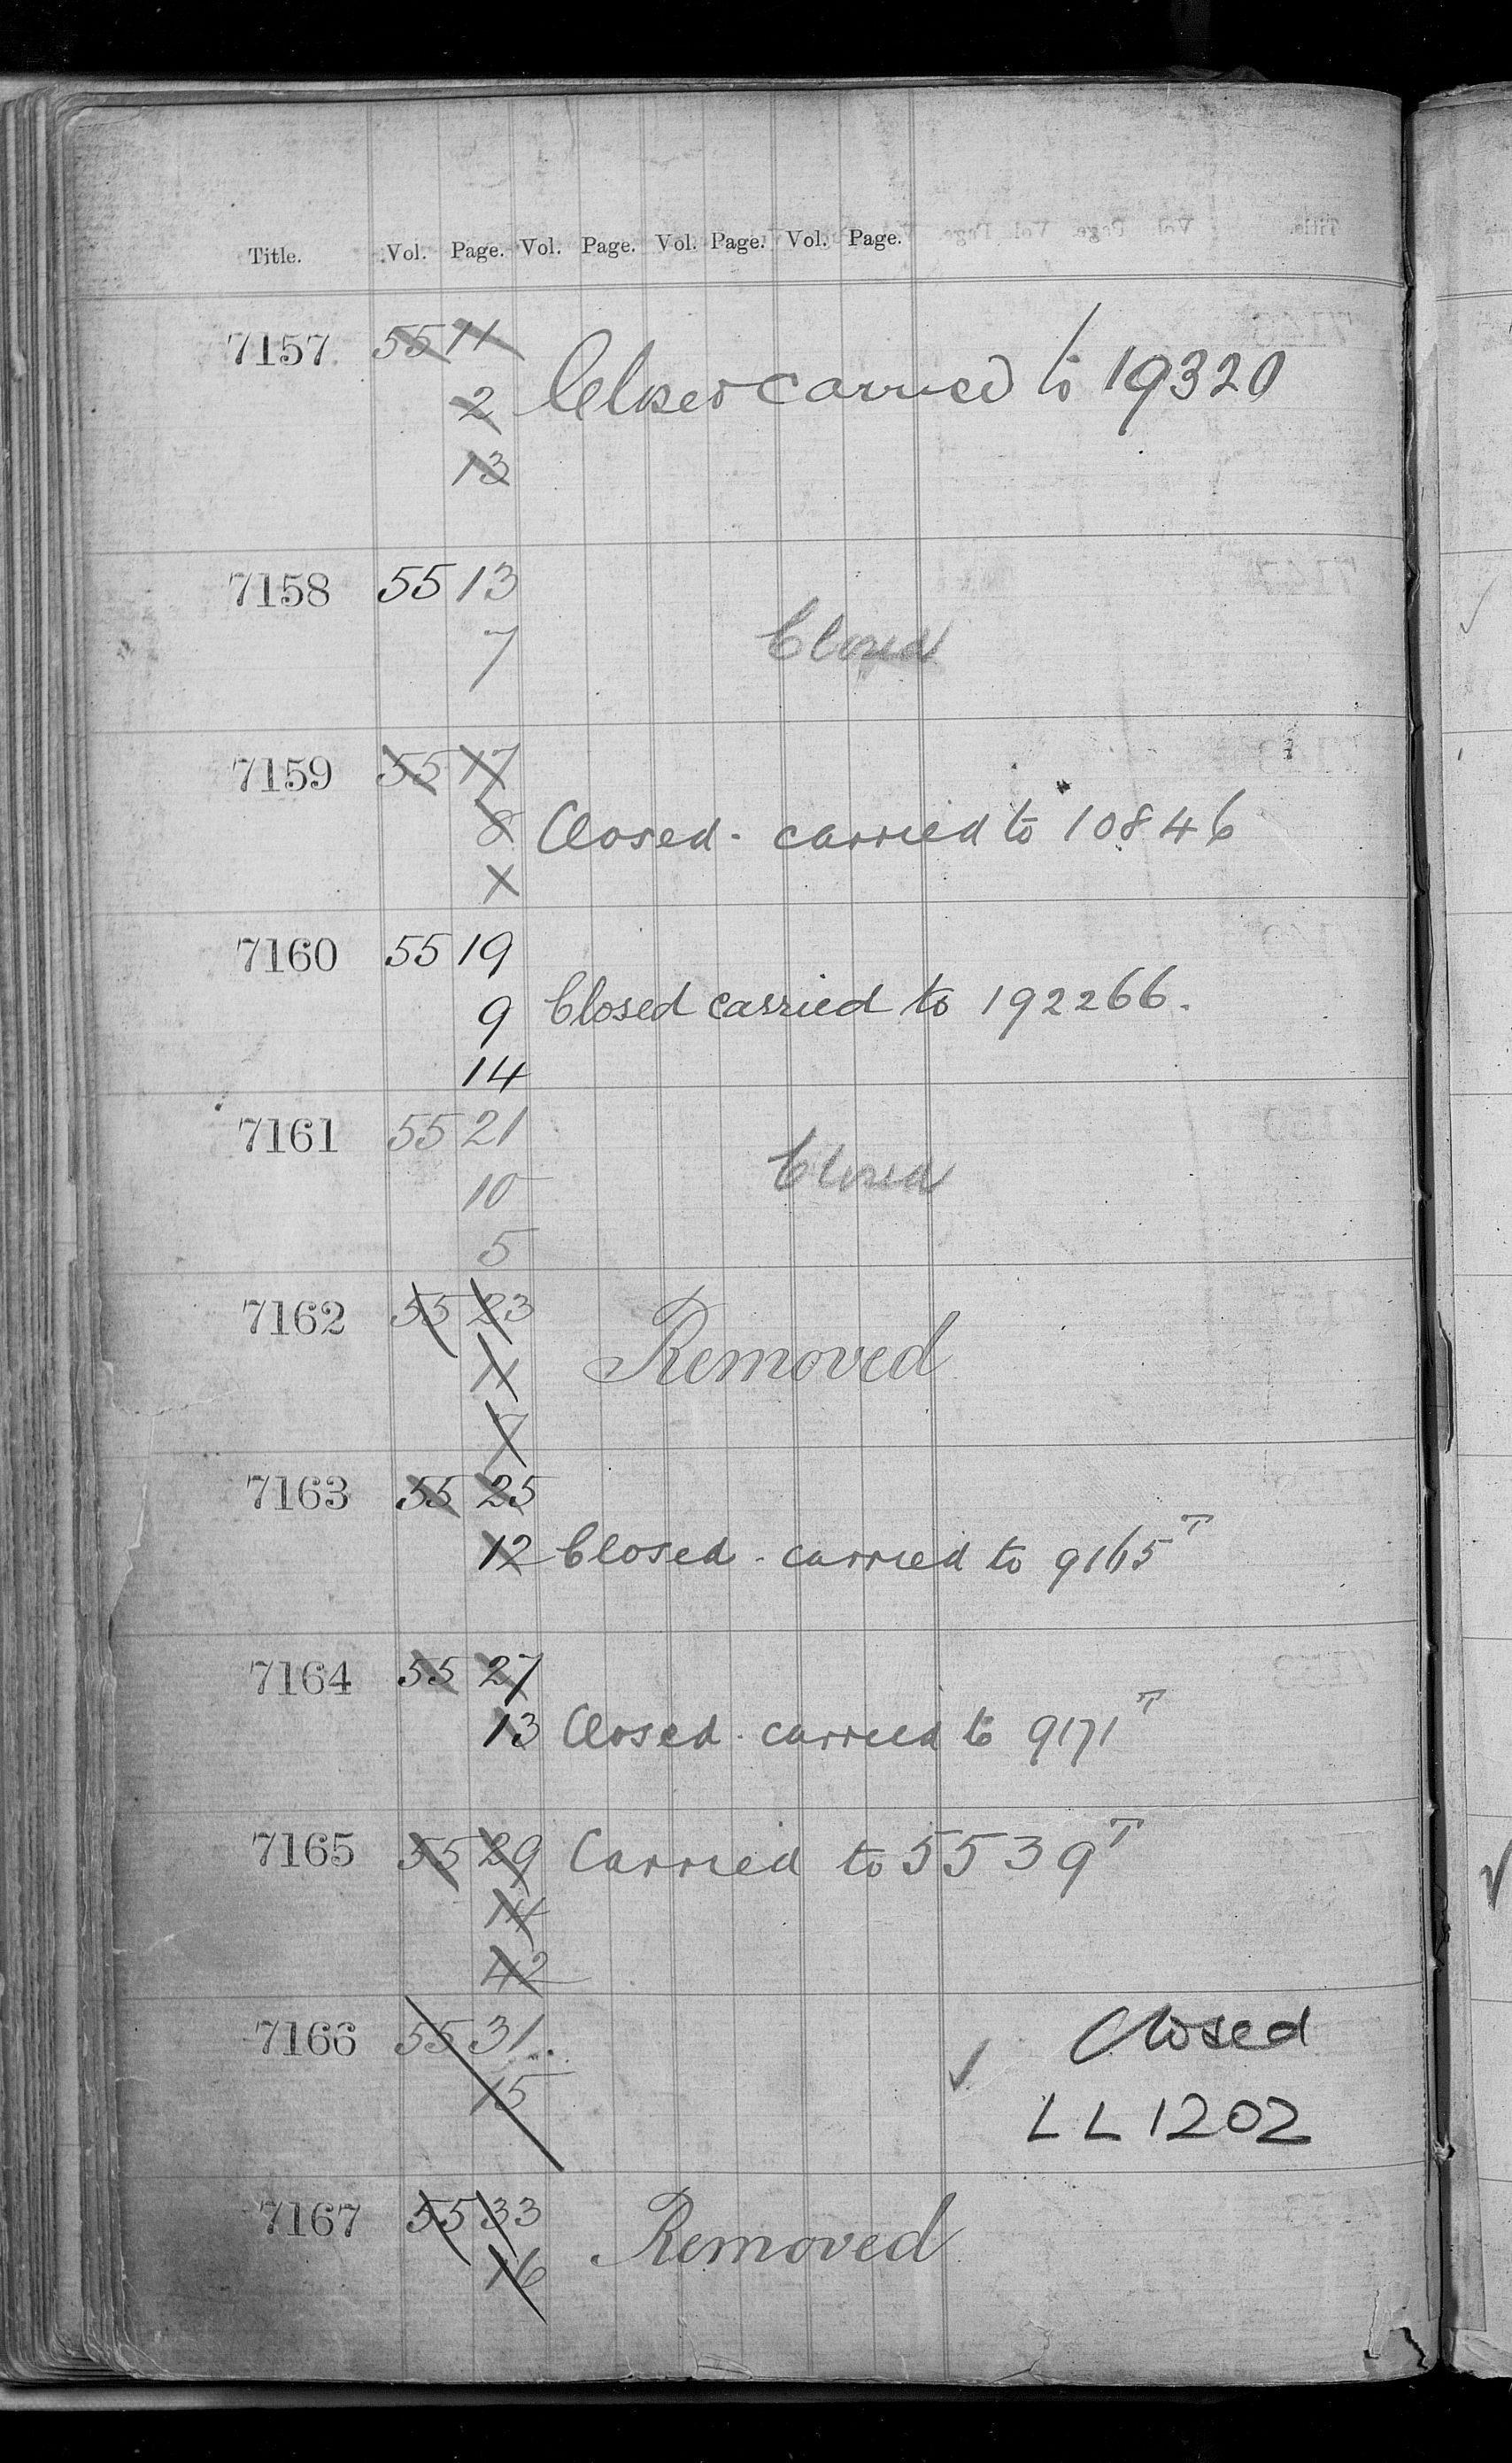 Title. Vol. Page. Vol. Page. Vol. Page. Vol. Page.
7157 55 11
2 Closed carried to 19320
13
7158 55 13
7 Closed
7159 55 17
8 Closed - carried to 10846
7160 55 19
9 Closed carried to 192266.
14
7161 55 21
10 Closed
5
7162 55 23
11 Removed
7
7163 55 25
12 Closed - carried to 9165T
7164 55 27
13 Closed - carried to 9171T
7165 55 29 Carried to 5539T
14
42
7166 55 31 Closed
15 ✓
LL1202
7167 55 33
16 Removed